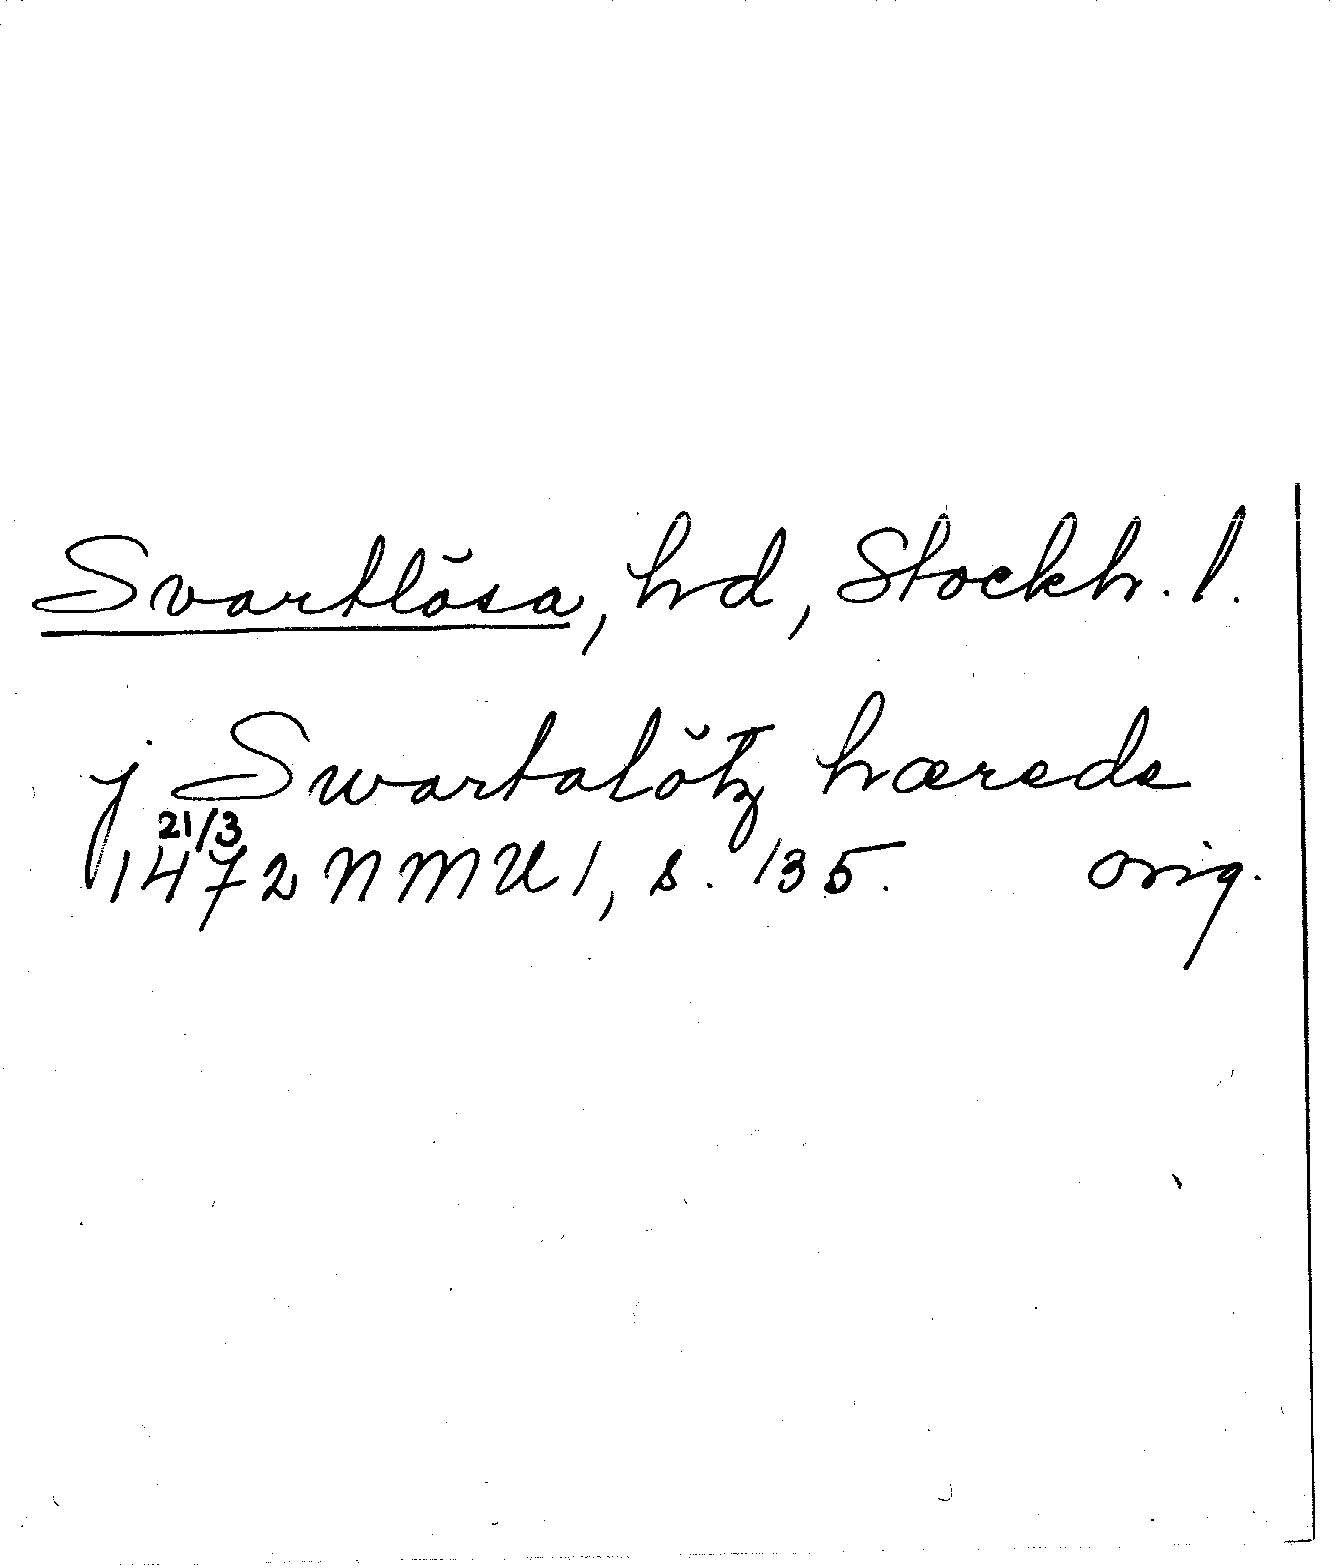 Svartlösa, hd, Stockh. l.
j Swartalötz hærede
21/3
1472 NMU 1, s. 135. orig.